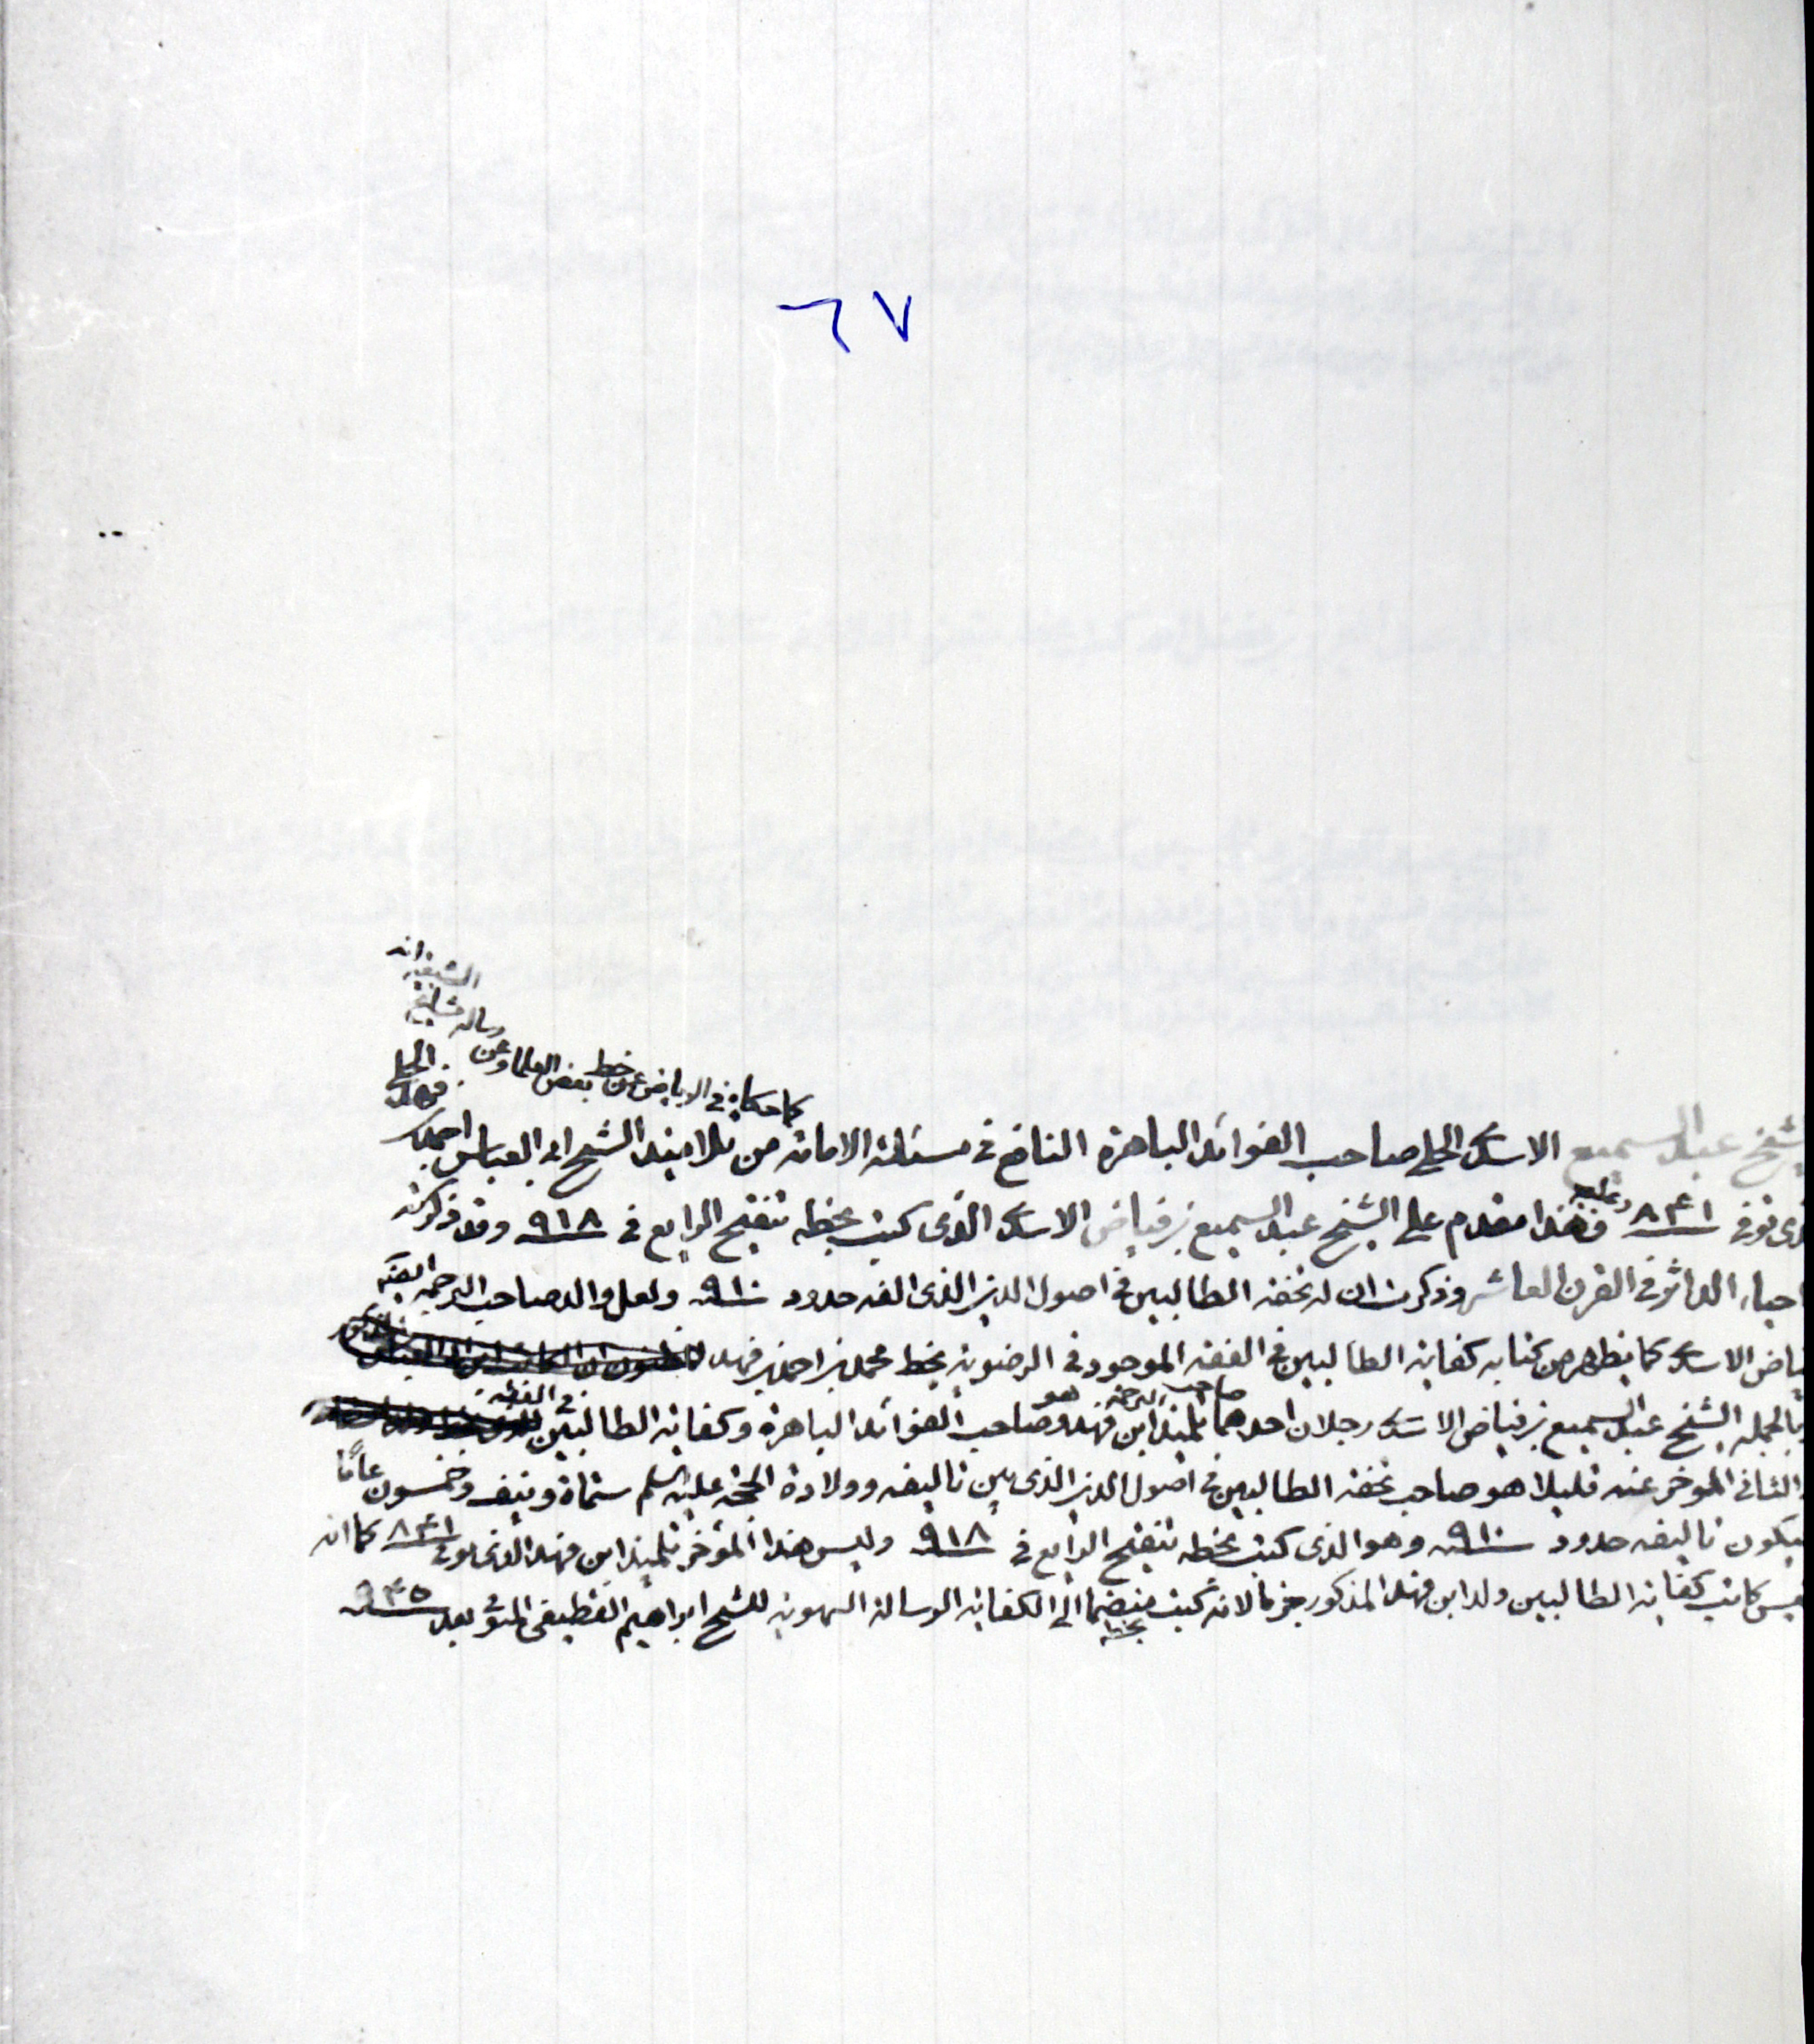 ٦٧
كما حكاه في الرياض عن خط بعض العلماء وعن
رسالة مشايخ
الشيعة انه
الشيخ عبد السميع الاسدي الحلي صاحب الفوائد الباهرة النافع في مسئلة الامامة من تلاميذ الشيخ ابي العباس احمد بن
فهد الحلي
الذي توفي ٨٤١ فهذا مقدم على الشيخ عبد السميع بن فياض الاسدي الذي كتب بخطه تنقيح الرايع في ٩١٨ وقد ذكرته
احياء الداثر في القرن العاشر وذكرت ان له تحفة الطالبين في اصول الدين الذي الفه حدود ٩١٠ ولعل والد صاحب الترجمة ايضا
فياض الاسدي كما يظهر من كتابه كفاية الطالبين في الفقه الموجود في الرضوية بخط محمد بن احمد بن فهد
وبالجملة الشيخ عبد السميع بن فياض الاسدي رجلان احدهما صاحب الترجمة تلميذ ابن فهد وهو صاحب الفوائد الباهرة وكفاية الطالبين في الفقه
والثاني المؤخر عنه قليلا هو صاحب تحفة الطالبين في اصول الدين الذي بين تاليفه وولادة الحجة عليه السلم ستماة ونيف وخمسون عامًا
فيكون تاليفه حدود ٩١٠ وهو الذي كتب بخطه تنقيح الرايع في ٩١٨ وليس هذا المؤخر تلميذ ابن فهد الذي توفي ٨٤١ كما انه
ليس كاتب كفاية الطالبين ولد ابن فهد المذكور جزما لانه كتب بخطه منضما الى الكفاية الرسالة السهوية للشيخ ابراهيم القطيفي المتوفى بعد ٩٤٥